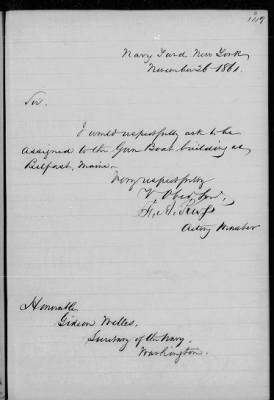 Navy Yard New York
November 26 1861.
Sir.
I would respectfully ask to be
assigned to the Gun Boat building at
Belfast, Maine.
Very respectfully
Y. Obed. Svt,
Acting Master
Honorable
Gideon Welles.
Secretary of the Navy.
Washington.